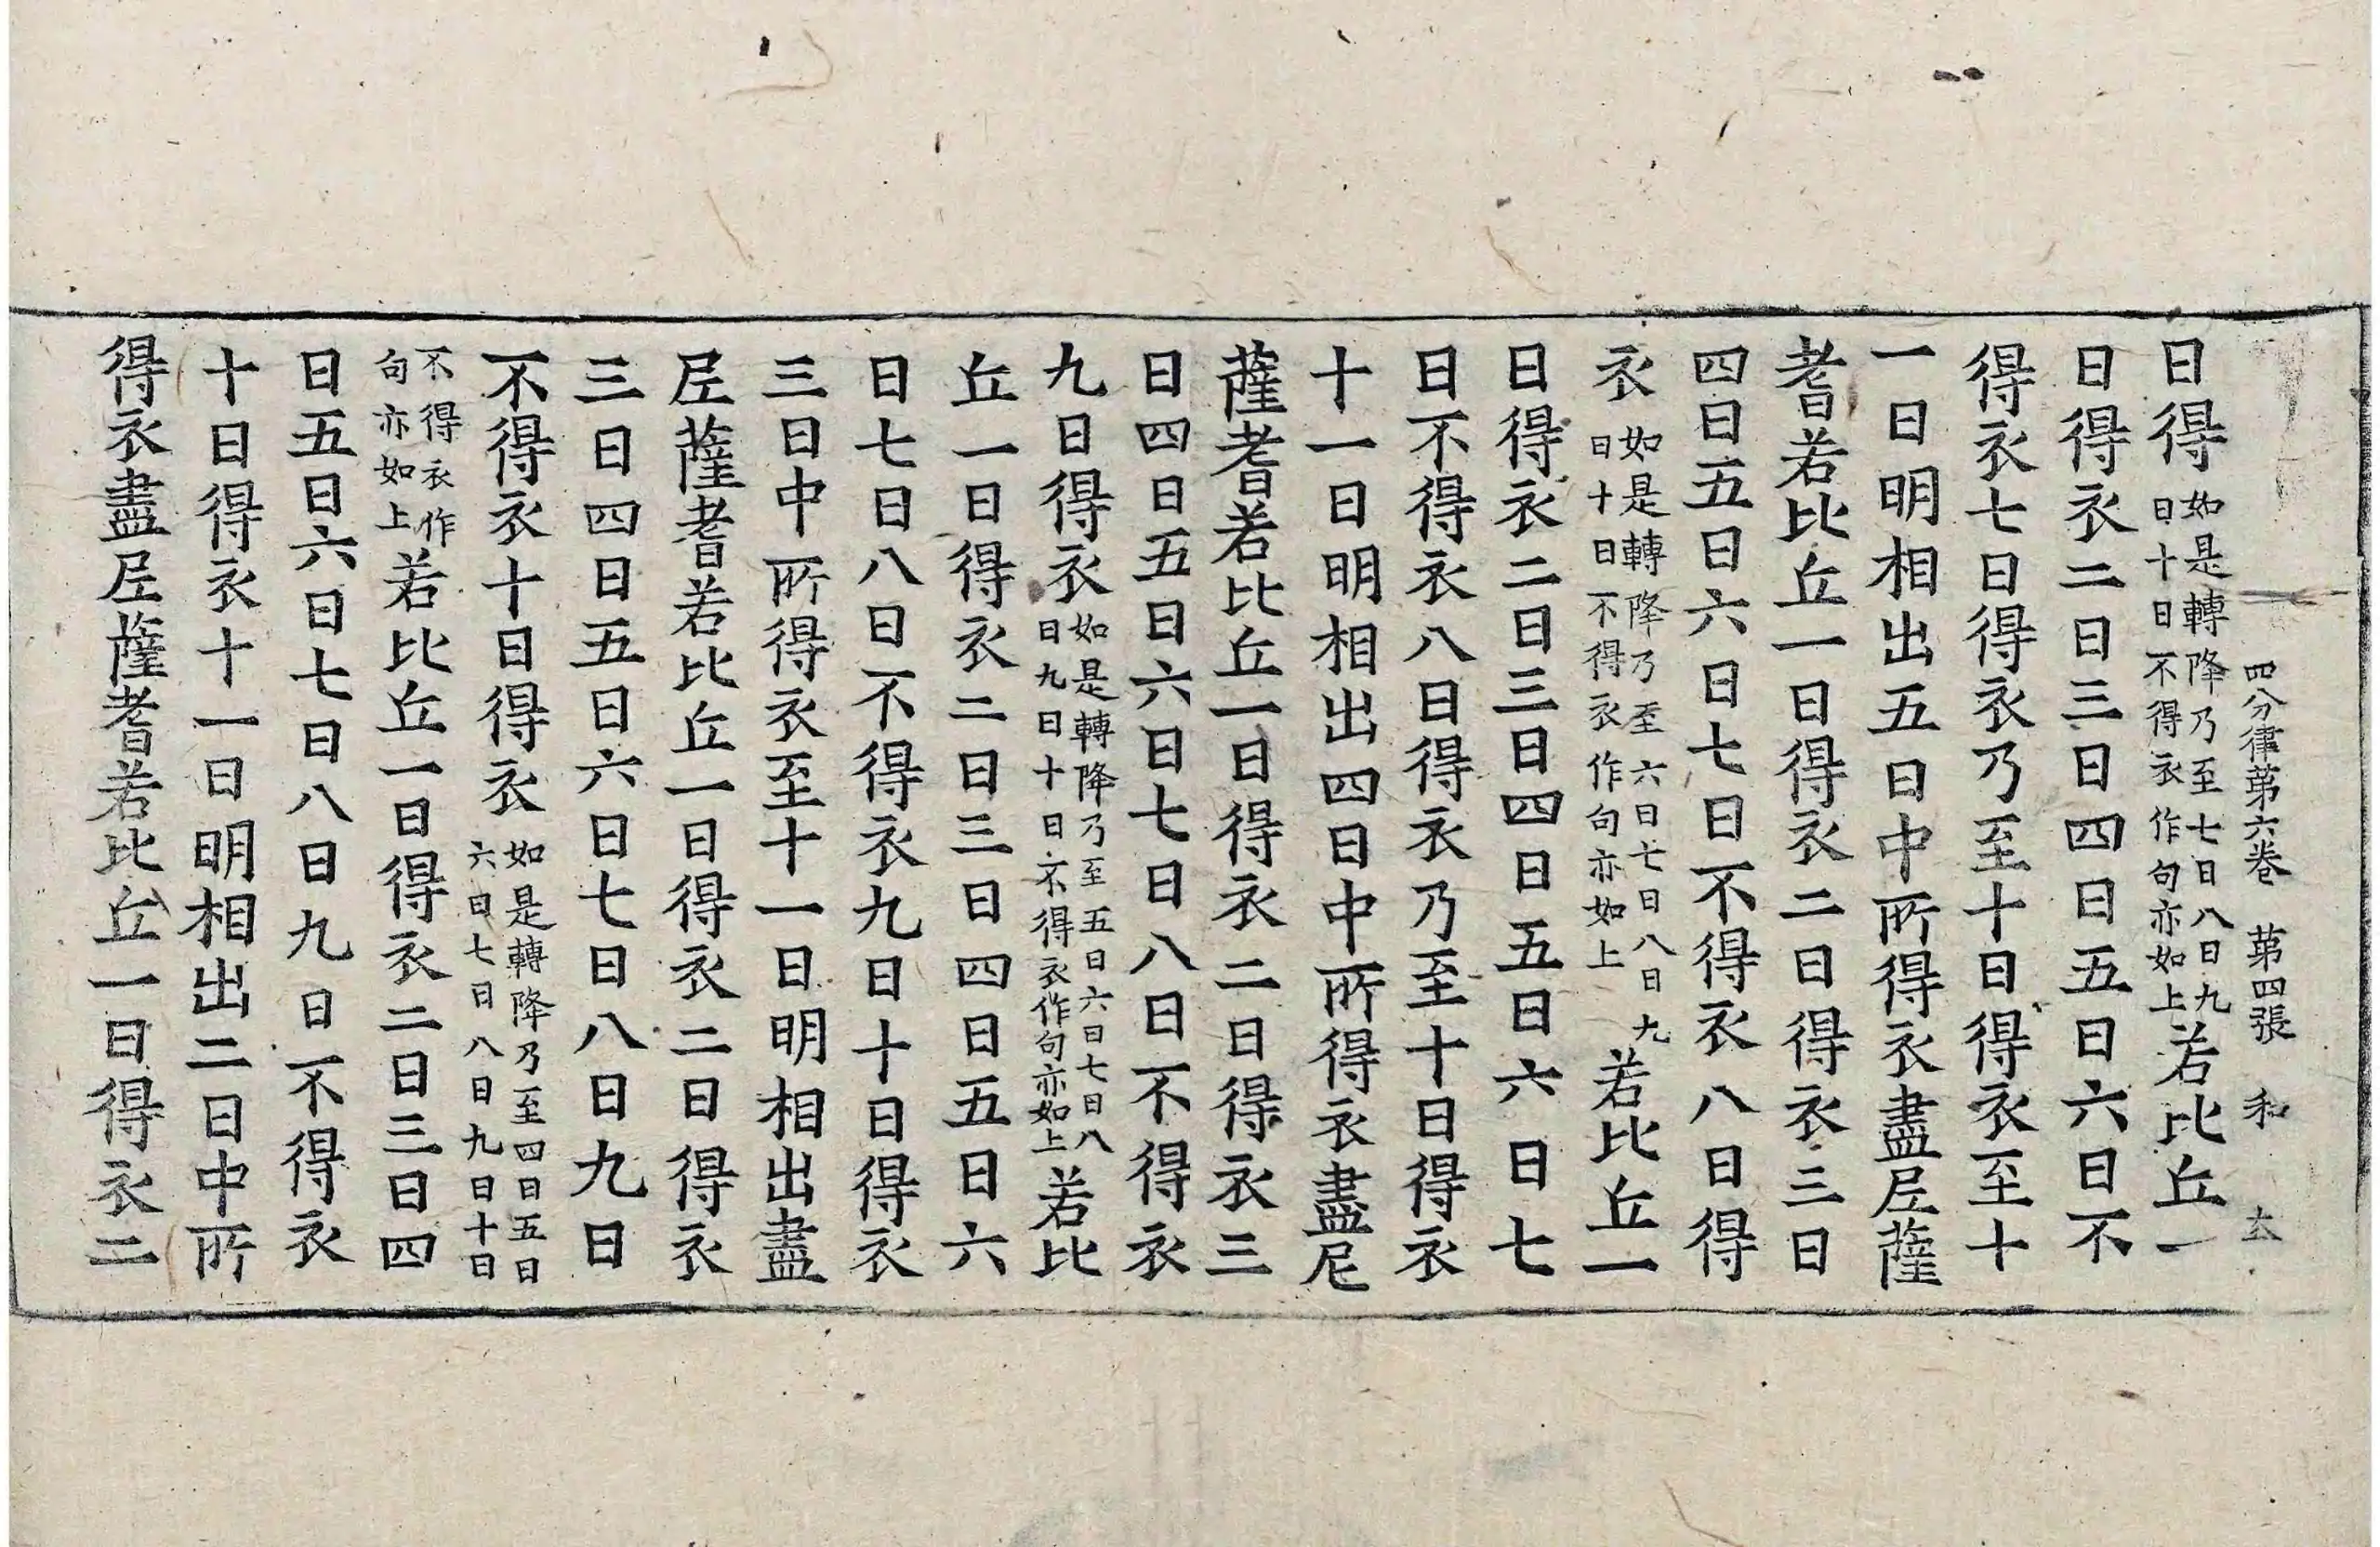 四分律苐六卷　苐四張　和　玄
日得如是轉降乃至七日八日九日十日不得衣作句亦如上若比丘一
日得衣二日三日四日五日六日不
得衣七日得衣乃至十日得衣至十
一日明相出五日中所得衣盡尼薩
耆若比丘一日得衣二日得衣三日
四日五日六日七日不得衣八日得
衣如是轉降乃至六日七日八日九日十日不得衣作句亦如上若比丘一
日得衣二日三日四日五日六日七
日不得衣八日得衣乃至十日得衣
十一日明相出四日中所得衣盡尼
薩耆若比丘一日得衣二日得衣三
日四日五日六日七日八日不得衣
九日得衣如是轉降乃至五日六日七日八日九日十日不得衣作句亦如上若比
丘一日得衣二日三日四日五日六
日七日八日不得衣九日十日得衣
三日中所得衣至十一日明相出盡
尼薩耆若比丘一日得衣二日得衣
三日四日五日六日七日八日九日
不得衣十日得衣如是轉降乃至四日五日六日七日八日九日十日
不得衣作句亦如上若比丘一日得衣二日三日四
日五日六日七日八日九日不得衣
十日得衣十一日明相出二日中所
得衣盡尼薩耆若比丘一日得衣二